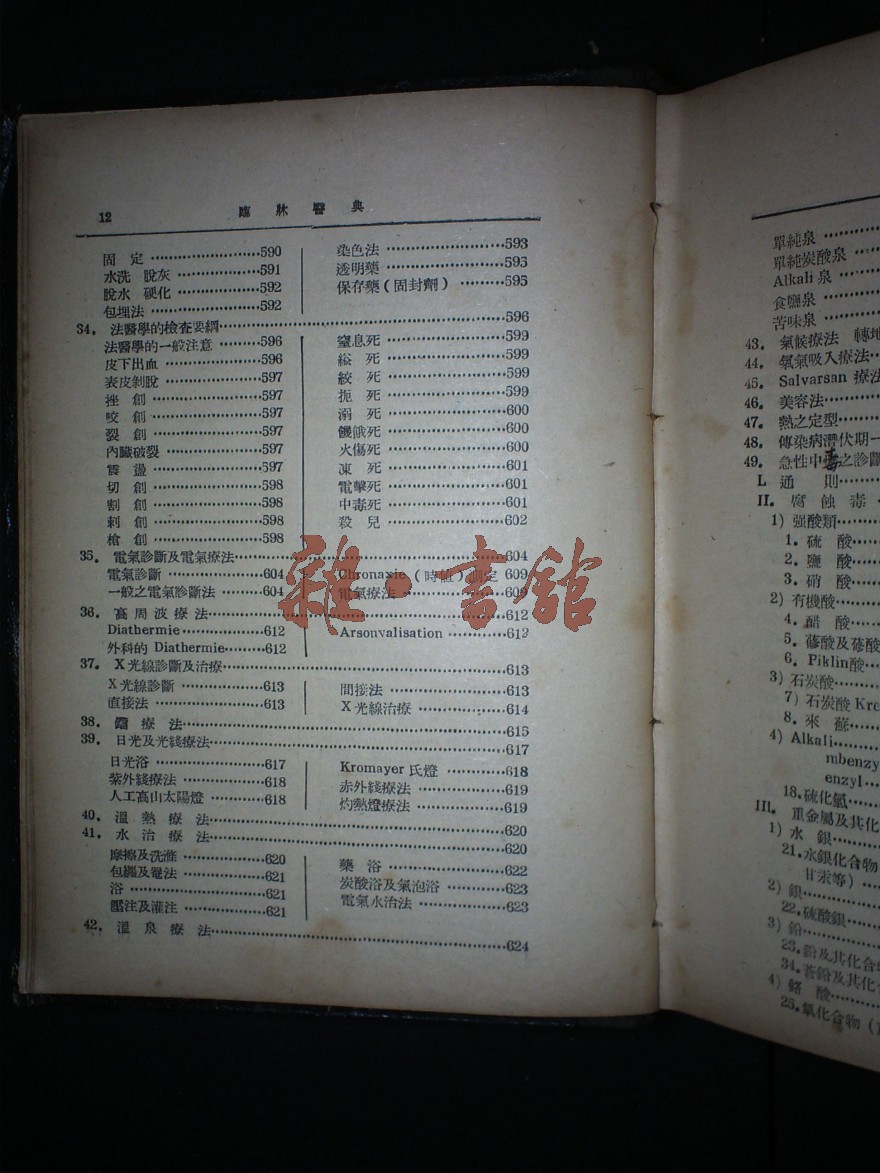 12
臨牀醫典
固定……590
水洗 脫灰……591
脫水 硬化……592
包埋法……592
染色法……593
透明藥……595
保存藥(固封劑)……595
34. 法醫學的檢査要綱……596
法醫學的一般注意……596
皮下出血……596
表皮剝脫……597
挫創……597
咬創……597
裂創……597
內臟破裂……597
震盪……597
切創……598
割創……598
刺創……598
槍創……598
窒息死……599
縊死……599
絞死……599
扼死……599
溺死……600
饑餓死……600
火傷死……600
凍死……601
電擊死……601
中毒死……601
殺兒……602
35. 電氣診斷及電氣療法……604
電氣診斷……604
一般之電氣診斷法……604
Chronaxie(時値)測定 609
電氣療法……609
36. 高周波療法……612
Diathermie……612
外科的 Diathermie……612
Arsonvalisation……612
37. X光線診斷及治療……613
X光線診斷……613
直接法……613
間接法……613
X光線治療……614
38. 療法……615
39. 日光及光綫療法……617
日光浴……617
紫外綫療法……618
人工高山太陽燈……618
Kromayer 氏燈……618
赤外綫療法……619
灼熱燈療法……619
40. 溫熱療法……620
41. 水治療法……620
摩擦及洗滌……620
包纏及罨法……621
浴……621
壓注及灌注……621
藥浴……622
炭酸浴及氣泡浴……623
電氣水治法……623
42. 溫泉療法……624
雜·書舘
單純泉……
單純炭酸泉……
Alkali 泉……
食鹽泉……
苦味泉……
43. 氣候療法 轉地
44. 氧氣吸入療法……
45. Salvarsan 療法
46. 美容法……
47. 熱之定型……
48. 傳染病潛伏期一
49. 急性中毒之診斷
I. 通則……
II. 腐蝕毒
1) 强酸類……
1. 硫酸……
2. 鹽酸……
3. 硝酸……
2) 有機酸……
4. 醋酸……
5. 蓚酸及蓚酸
6. Piklin酸……
3) 石炭酸……
7) 石炭酸 Kre
8. 來蘇……
4) Alkali……
mbenzy
enzyl
18. 硫化氫……
III. 重金屬及其化
1) 水銀……
21. 水銀化合物
甘汞等)……
2) 銀……
22. 硫酸銀……
3) 鉛……
23. 鉛及其化合
34. 蒼鉛及其化
4) 鉻酸……
25. 氧化合物